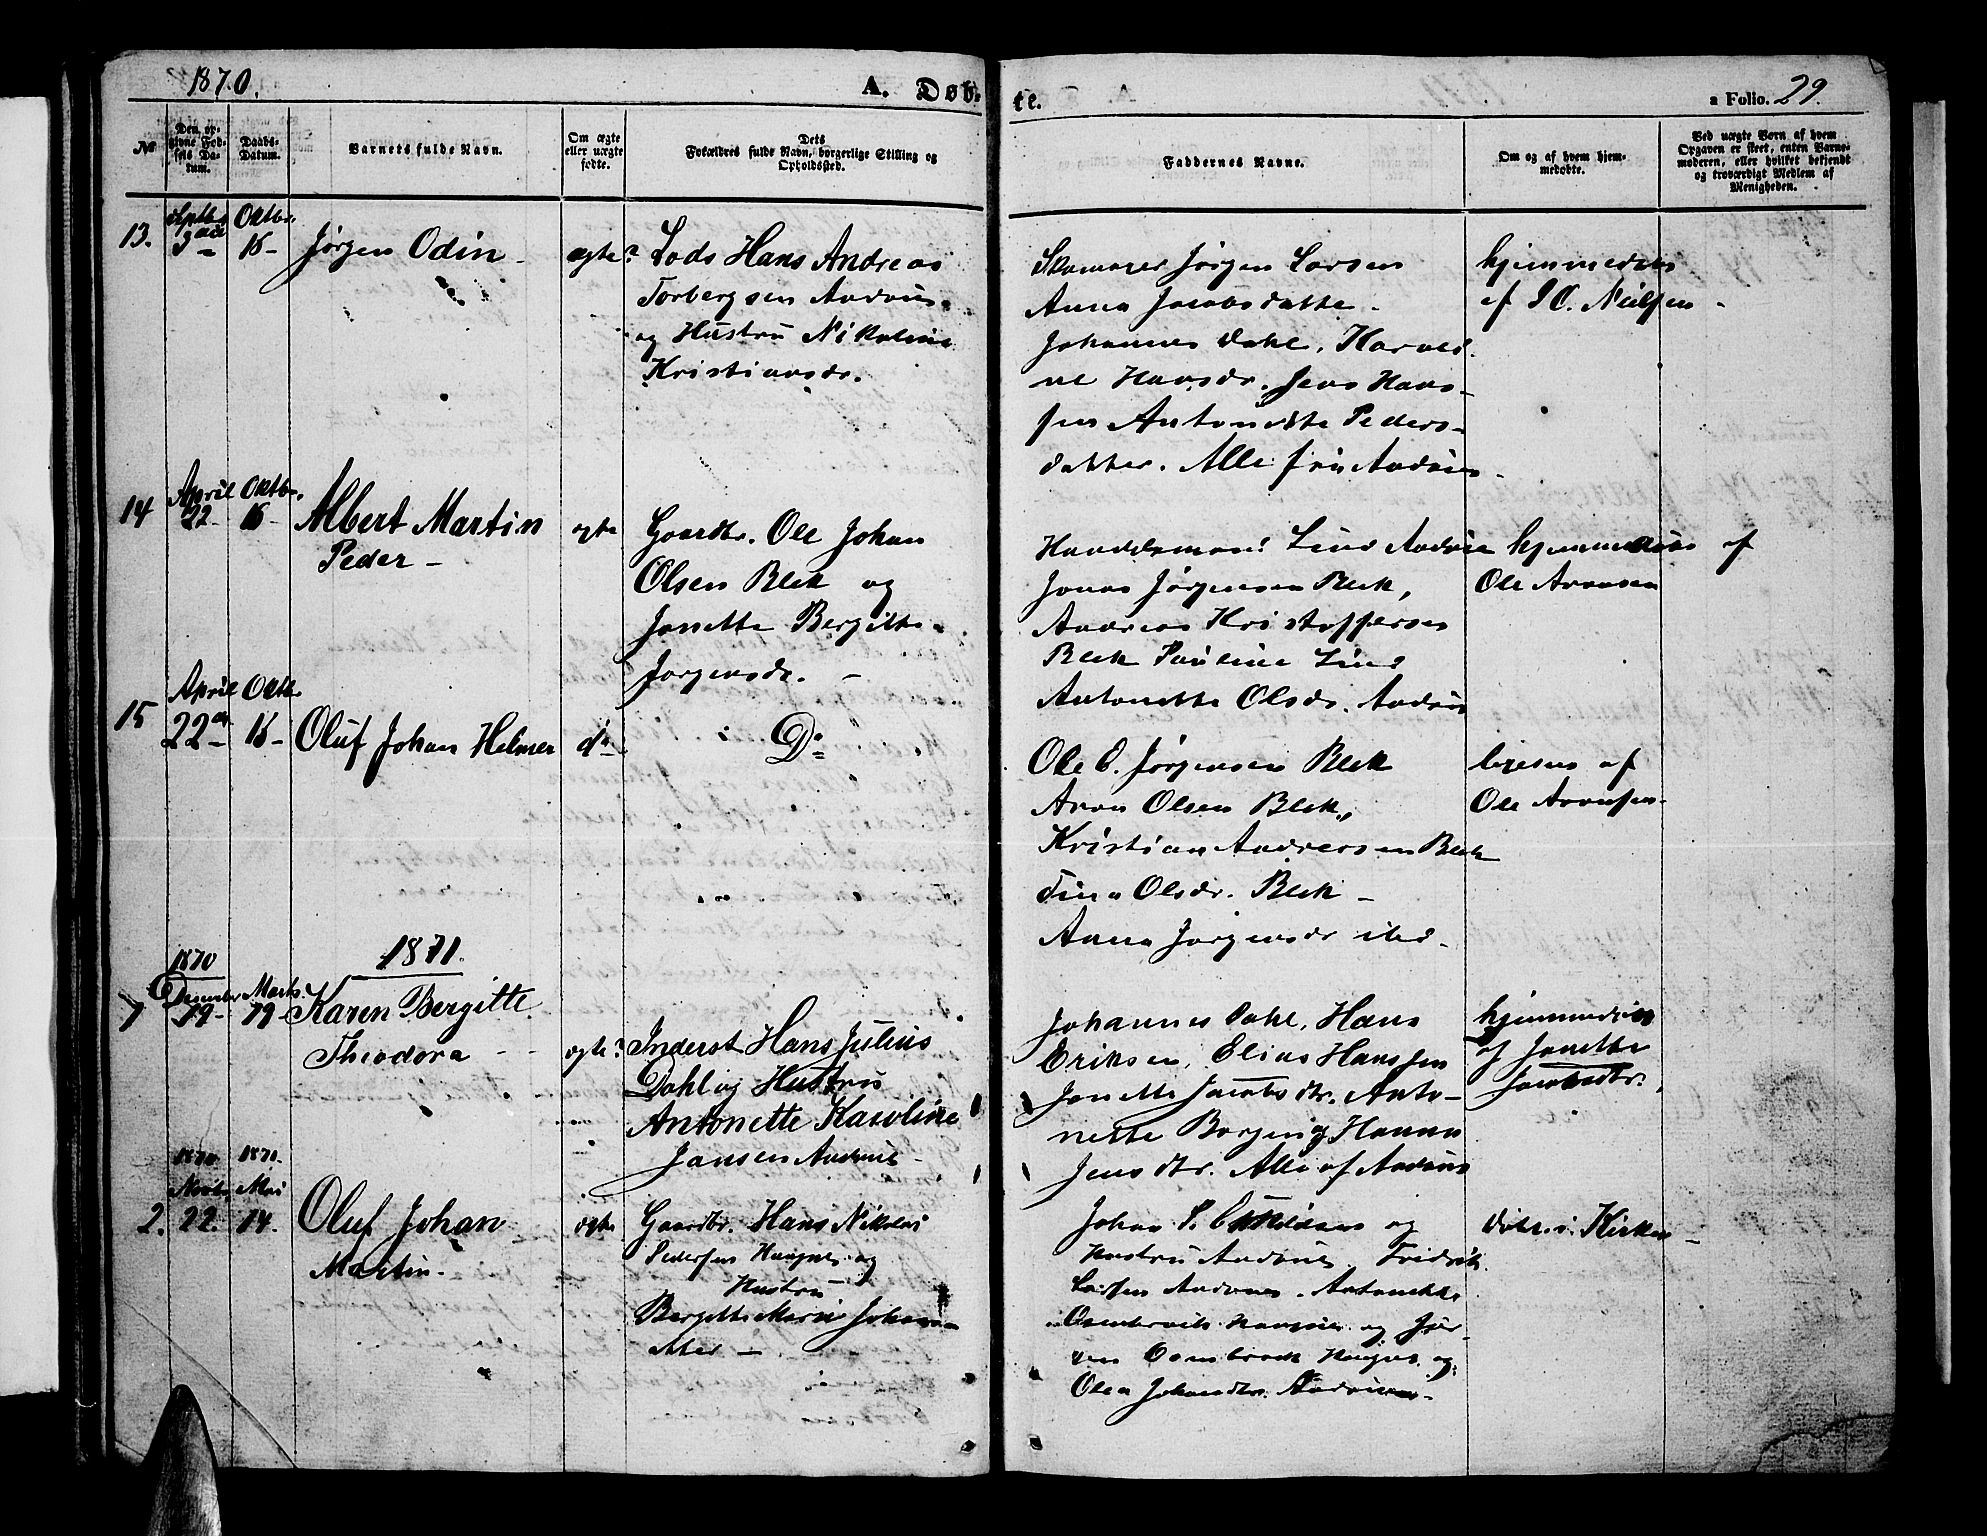 1870.
A. Døb-
te.
a Folio. 29.
No
Den opgivne Fødsels Datum.
Daabs-Datum.
Barnets fulde Navn.
Om ægte eller uægte fødte.
Dets Forældres fulde Navn, borgerlige Stilling og Opholdssted.
Faddernes Navne.
Om og af hvem hjemmedøbte.
Ved uægte Børn af hvem Opgaven er skeet, enten Barnemoderen, eller hvilket bekjendt og troværdigt Medlem af Menigheden.
13.
Septbr
Oktbr.
Jørgen Odin
ægte?
Lods Hans Andreas
Torbergsen Andøus
og Hustru Nikoline
Kristiansdr.
Jørgen Larsen
Anna Jacobsdatte
Johannes Dahl, Harald-
ne Hansdr. Jens Hans-
sen Antonette Peders-
datter. Alle fra
hjemmedøbt
af I C. Nielsen
14
April 22
Oktbr. 16
Albert Martin
Peder
ægte
Gaardbr. Ole Johan
Olsen Blek og
Jonette Bergitte
Jørgensdr.
Handelsmand Lind
Jonas Jørgensen Blek,
Andreas Kristoffersen
Blek Pauline Lind
Antonette Olsdr.
hjemmedøbt af
Ole Aronsen
15
April 22de
Oktbr. 16
Oluf Johan Helmer
do
Do
Ole O. Jørgensen Blek
Aron Olsen Blek,
Kristian Andersen Blek
Tina Olsdr. Blek
Anna Jørgensdr ibd.
ligesaa af
Ole Aronsen
1871.
1870
December 19
Marts 19
Karen Bergitte
Theodora
ægte?
Inderst Hans Julius
Dahl og Hustru
Antonette Karoline
Jansen
Johannes Dahl, Hans
Eriksen, Elias Hanssen
Jonette Jacobsdtr. Anto-
nette Borgen og Hanna
Jensdtr. Alle af
hjemmedøbt
af Jonette
Jacobsdtr.
2.
1870
Novbr
22.
1871.
Mai
14.
Oluf Johan
Martin
ægte
Gaardbr. Hans Nikolai
Pedersen Haugnes og
Hustru
Bergitte Marie
Johan P.
og
Hustru
Fredrik
Larsen
Antonette
og
og
Olea Johansdtr.
døbt i Kirken